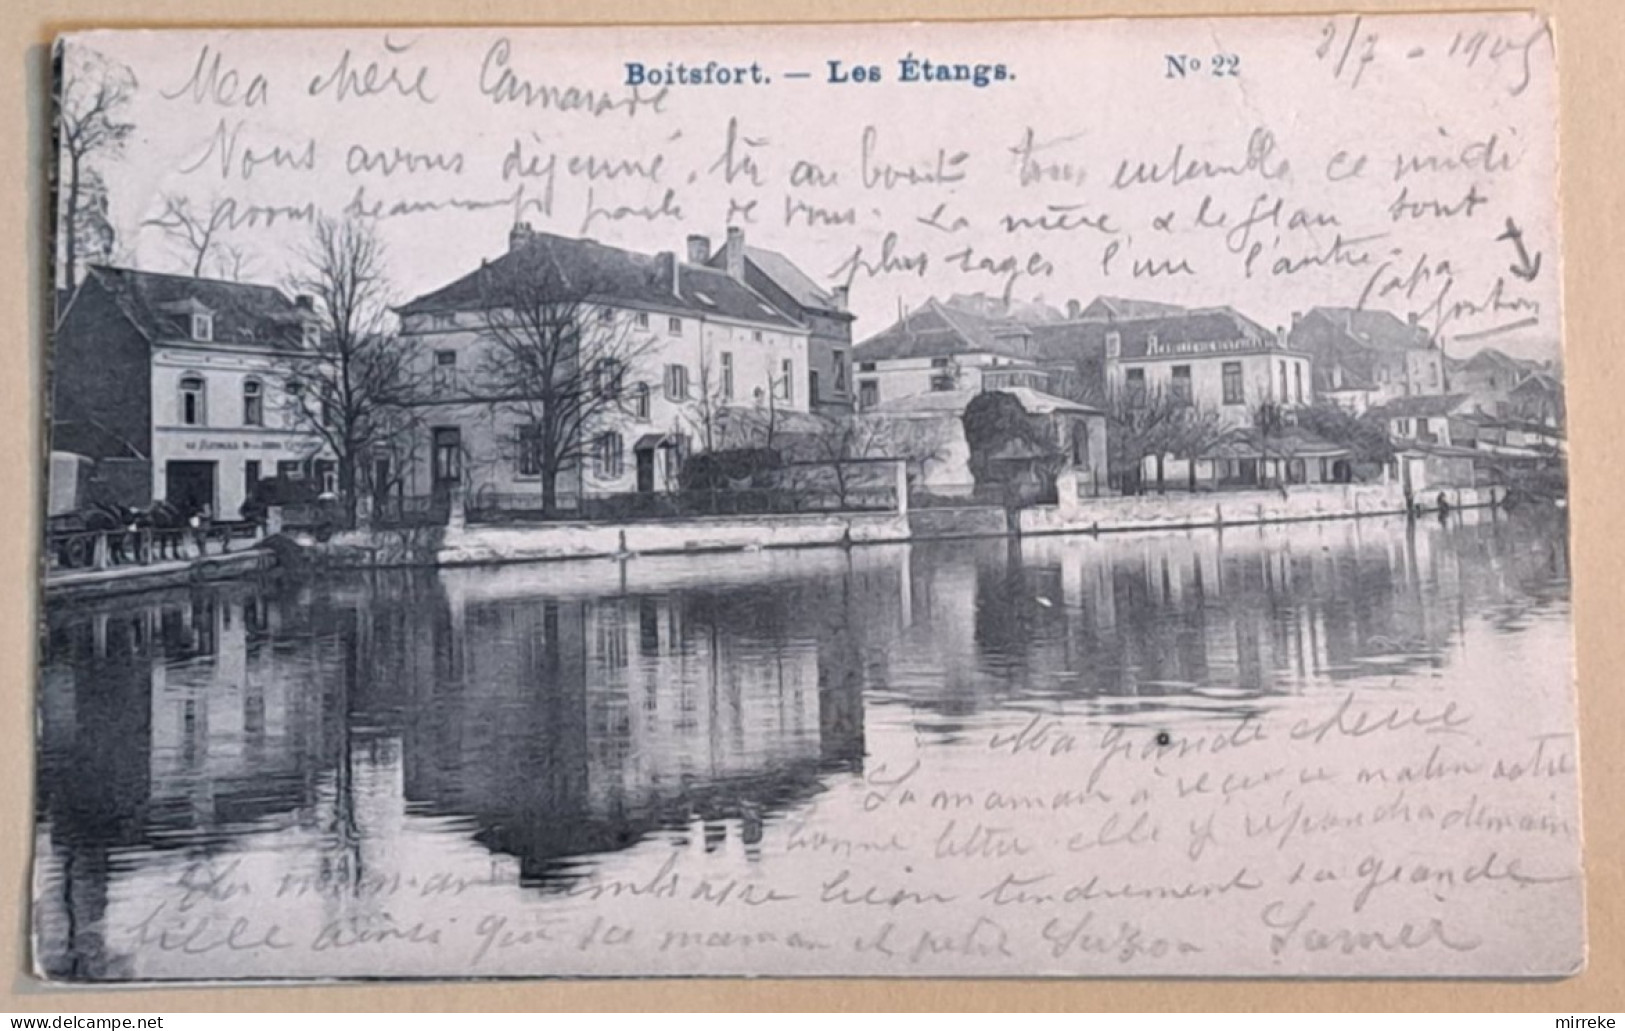 Boitsfort. — Les Étangs.
No 22
2/7 - 1905
Ma chère Camarade
Nous avons déjeuné, au bout tous ensemble ce midi
avons beaucoup parlé de vous. La mère & le sont
plus sages l'un l'autre.
papa
Ma grande chérie
Ta maman a reçu ce matin votre
bonne lettre elle y répondra demain
Ta maman embrasse bien tendrement sa grande
fille ainsi que sa maman et petit Suzon
mirreke